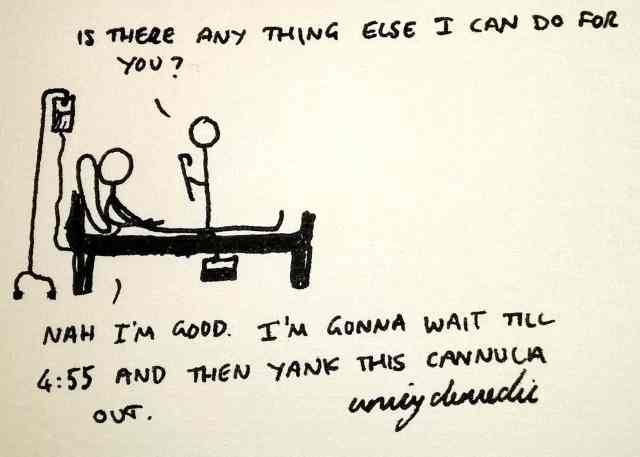 IS THERE ANY THING ELSE I CAN DO FOR
YOU?
NAH I'M GOOD. I'M GONNA WAIT TILL
4:55 AND THEN YANK THIS CANNULA
OUT.